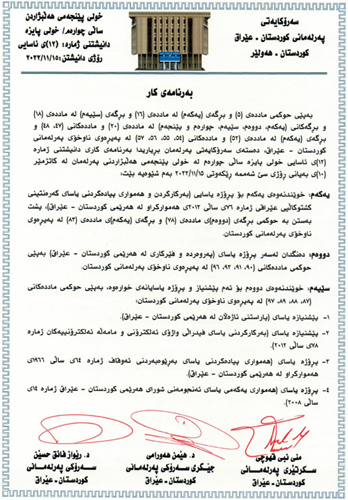 سەرۆکایەتی
پەرلەمانی کوردستان - عێراق
کوردستان - هەولێر
خولی پێنجەمی هەڵبژاردن
ساڵی چوارەم/ خولی پایزە
دانیشتنی ژمارە: (١٢)ی ئاسایی
ڕۆژی دانیشتن: ٢٠٢٢/١١/١٥
بەرنامەی کار
بەپێی حوکمی ماددەی (٥) و بڕگەی (یەکەم) لە ماددەی (١٦) و بڕگەی (سێیەم) لە ماددەی (١٨)
و بڕگەکانی (یەکەم، دووەم، سێیەم، چوارەم و پێنجەم) لە ماددەی (٢٠) و ماددەکانی (٤٧، ٤٨) و
بڕگەی (یەکەم) لە ماددەی (٥٢) و ماددەکانی (٥٤، ٥٥، ٥٦، ٥٧) لە پەیڕەوی ناوخۆی پەرلەمانی
کوردستان - عێراق، دەستەی سەرۆکایەتی پەرلەمان بڕیاریدا بەرنامەی کاری دانیشتنی ژمارە
(١٢)ی ئاسایی خولی پایزەی ساڵی چوارەم لە خولی پێنجەمی هەڵبژاردنی پەرلەمان لە کاتژمێر
(١٠)ی بەیانی ڕۆژی سێ شەممە ڕێکەوتی ٢٠٢٢/١١/١٥ بەم شێوەیە بێت:
یەکەم: خوێندنەوەی یەکەم بۆ پڕۆژە یاسایی (بەرکارکردن و هەمواری یاسای گەرەنتینی
کشتوکاڵیی عێراقی ژمارە ٧٦ی ساڵی ٢٠١٢ی هەموارکراو لە هەرێمی کوردستان - عێراق)، پشت
بەستن بە حوکمی بڕگەی (دووەم)ی ماددەی (٧٨) و بڕگەی (یەکەم)ی ماددەی (٨٣) لە پەیڕەوی
ناوخۆی پەرلەمانی کوردستان.
دووەم: دەنگدان لەسەر پڕۆژە یاسای (پەروەردە و فێرکاری لە هەرێمی کوردستان - عێراق) بەپێی
حوکمی ماددەکانی (٩٠، ٩١، ٩٢، ٩٣، ٩٦) لە پەیڕەوی ناوخۆی پەرلەمانی کوردستان.
سێیەم: خوێندنەوەی دووەم بۆ ئەم پێشنیاز و پڕۆژە یاسایانەی خوارەوە، بەپێی حوکمی ماددەکانی
(٨٧، ٨٨، ٨٩، ٩٧) لە پەیڕەوی ناوخۆی پەرلەمانی کوردستان.
١- پێشنیازە یاسای (پاراستنی ئاژەڵان لە هەرێمی کوردستان - عێراق).
٢- پێشنیازە یاسای (بەرکارکردنی یاسای فیدراڵی واژۆی ئەلکترۆنی و مامەڵە ئەلکترۆنییەکان ژمارە
٧٨ی ساڵی ٢٠١٢).
٣- پڕۆژە یاسای (هەمواری یاسای بەڕێوەبەردنی ئەوقاف ژمارە ٦٤ی ساڵی ١٩٦٦ی
هەموارکراو لە هەرێمی کوردستان - عێراق).
٤- پڕۆژە یاسای (هەمواری یەکەمی یاسای ئەنجومەنی شورای هەرێمی کوردستان - عێراق ژمارە ١٤ی
ساڵی ٢٠٠٨).
منی نبی قهوچی
سکرتێری پەرلەمانی
کوردستان - عێراق
د. هێمن هەورامی
جێگری سەرۆکی پەرلەمانی
کوردستان - عێراق
د. ڕێواز فائق حسین
سەرۆکی پەرلەمانی
کوردستان - عێراق